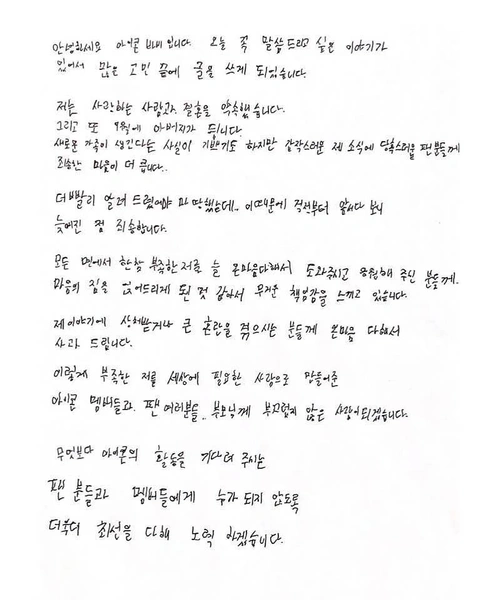 안녕하세요 아이콘 바비입니다. 오늘 꼭 말씀드리고 싶은 이야기가
있어서 많은 고민 끝에 글을 쓰게 되었습니다.
저는 사랑하는 사람과 결혼을 약속했습니다.
그리고 또 9월에 아버지가 됩니다.
새로운 가족이 생긴다는 사실이 기쁘기도 하지만 갑작스러운 제 소식에 당혹스러울 팬분들께
죄송한 마음이 더 큽니다..
더 빨리 알려 드렸어야 마땅했는데.. 이 때문에 걱정부터 앞서다 보니
늦어진 점 죄송합니다.
모든 면에서 한참 부족한 저를 늘 온마음다해서 도와주시고 응원해 주신 분들께.
마음의 짐을 얹어드리게 된 것 같아서 무거운 책임감을 느끼고 있습니다.
제 이야기에 상처받거나 큰 혼란을 겪으시는 분들께 온마음 다해서
사과 드립니다.
이렇게 부족한 저를 세상에 필요한 사람으로 만들어준
아이콘 멤버들과. 팬 여러분들.. 부모님께 부끄럽지 않은 사람이되겠습니다.
무엇보다 아이콘의 활동을 기다려 주시는
팬 분들과 멤버들에게 누가 되지 않도록
더욱더 최선을 다해 노력 하겠습니다.